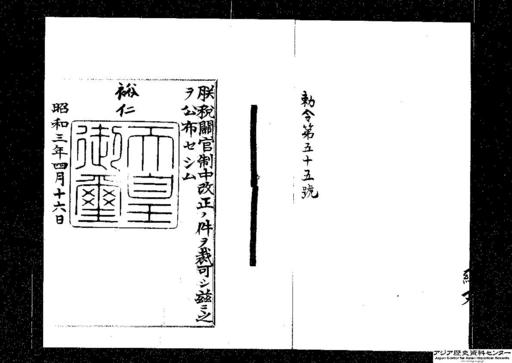 勅令第五十五號
朕税關官制中改正ノ件ヲ裁可シ茲ニ之
ヲ公布セシム
裕仁
天皇御璽
昭和三年四月十六日
アジア歴史資料センター
Japan Center for Asian Historical Records